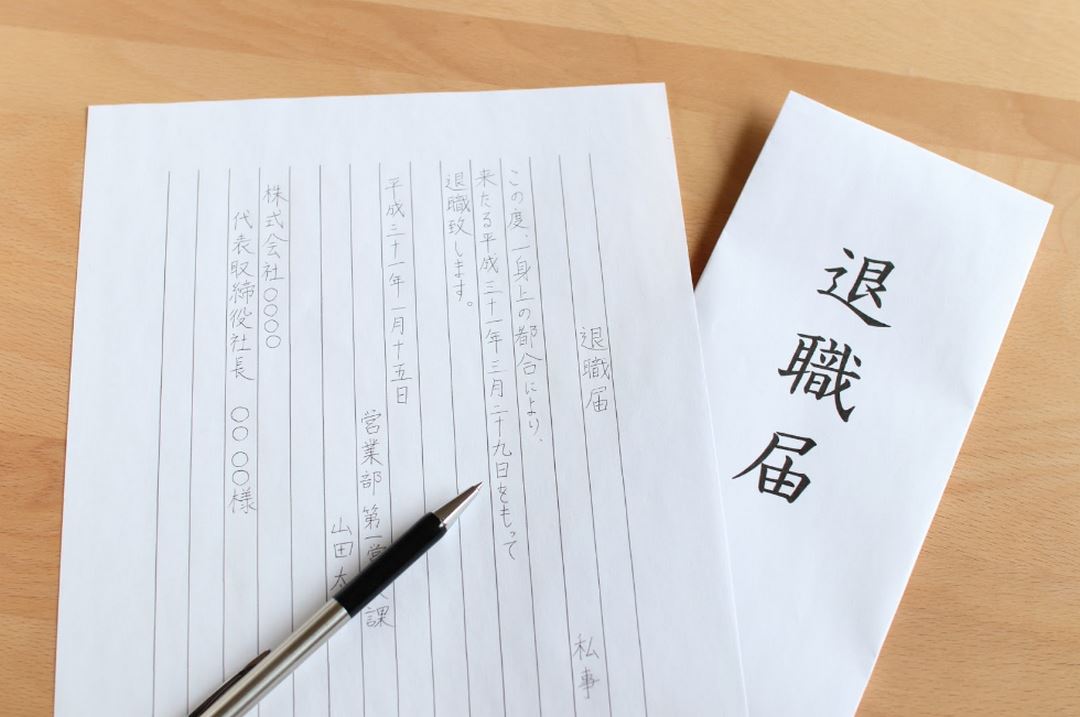 退職届
私事
この度、一身上の都合により、
来たる平成三十一年三月二十九日をもって
退職致します。
平成三十一年一月十五日
営業部 第一 課
山田太
株式会社〇〇〇〇
代表取締役社長 〇〇 〇〇様
退職届